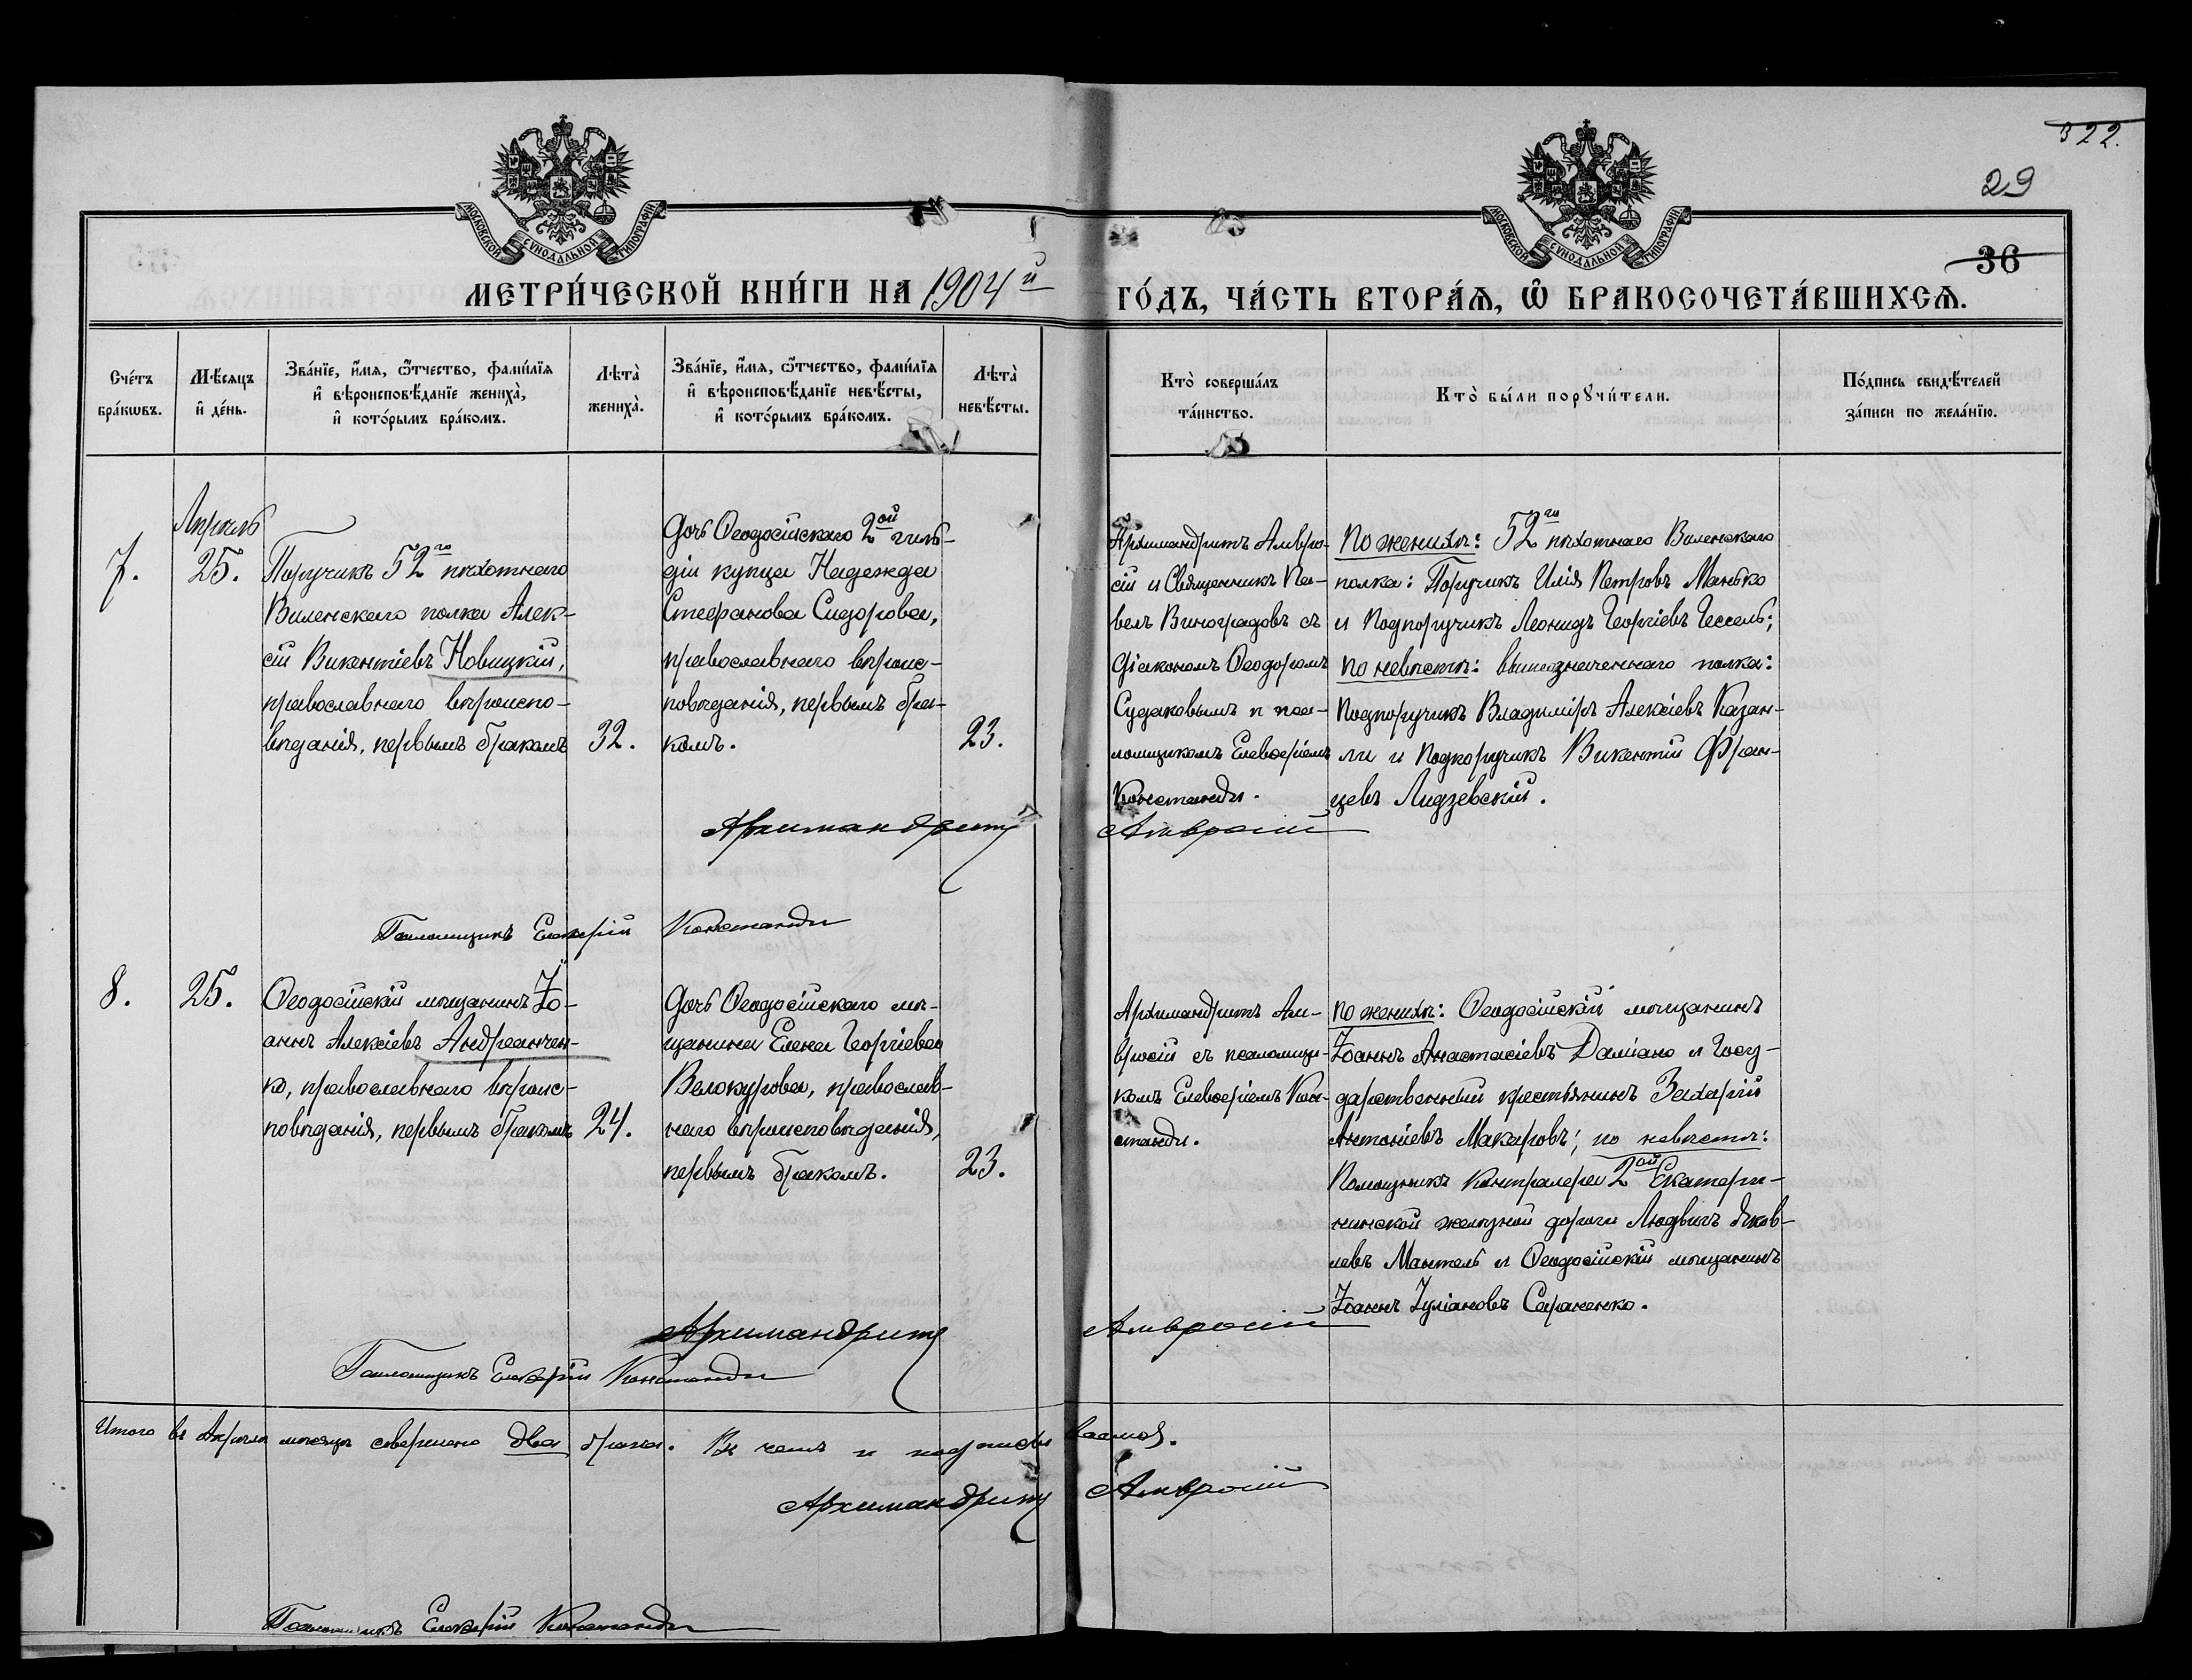 322.
29
36
МОСКОВСКОЙ СѴНОДАЛЬНОЙ ТИПОГРАФІИ
МОСКОВСКОЙ СѴНОДАЛЬНОЙ ТИПОГРАФІИ
МЕТРИ́ЧЕСКОЙ КНИ́ГИ НА 1904й ГО́ДЪ, ЧА́СТЬ ВТОРА́Ѧ, Ѽ БРАКОСОЧЕТА́ВШИХСѦ.
Сче́тъ
бра́кѡвъ.
Мѣ́сѧцъ
и҆ де́нь.
Зва́нїе, и҆́мѧ, ѻ҆́тчество, фами́лїѧ
и҆ вѣроисповѣ́данїе жениха̀,
и҆ кото́рымъ бра́комъ.
Лѣта̀
жениха̀.
Зва́нїе, и҆́мѧ, ѻ҆́тчество, фами́лїѧ
и҆ вѣроисповѣ́данїе невѣ́сты,
и҆ кото́рымъ бра́комъ.
Лѣта̀
невѣ́сты.
Кто̀ соверша́лъ
та́инство.
Кто̀ бы́ли порꙋчи́тели.
По́дпись свидѣ́телей
за́писи по жела́нїю.
7.
Апрѣль
25.
Поручикъ 52го пѣхотнаго
Виленскаго полка Алек-
сій Викентіевъ Новицкій,
православнаго вѣроиспо-
вѣданія, первымъ бракомъ
32.
Дочь Ѳеодосійскаго 2ой гиль-
діи купца Надежда
Стефанова Сидорова,
православнаго вѣроис-
повѣданія, первымъ бра-
комъ.
23.
Архимандритъ Амвро-
сій и Священникъ Па-
велъ Виноградовъ съ
діакономъ Ѳеодоромъ
Судаковымъ и пса-
ломщикомъ Елевѳеріемъ
Константи.
По женихѣ: 52го пѣхотнаго Виленскаго
полка: Поручикъ Илія Петровъ Манько
и Подпоручикъ Леонидъ Георгіевъ Гессель;
по невѣстѣ: вышезначеннаго полка:
Подпоручикъ Владиміръ Алексіевъ Казан-
ли и Подпоручикъ Викентій Фран-
цевъ Лидзевскій.
Архимандритъ Амвросій
Псаломщикъ Елевѳерій Константи
8.
25.
Ѳеодосійскій мѣщанинъ Іо-
аннъ Алексіевъ Андреанчен-
ко, православнаго вѣроис-
повѣданія, первымъ бракомъ
24.
Дочь Ѳеодосійскаго мѣ-
щанина Елена Георгіева
Белокурова, православ-
наго вѣроисповѣданія,
первымъ бракомъ.
23.
Архимандритъ Ам-
вросій съ псаломщи-
комъ Елевѳеріемъ Кон-
станди.
по женихѣ: Ѳеодосійскій мѣщанинъ
Іоаннъ Анастасіевъ Даміано и Госу-
дарственный крестьянинъ Захарій
Антоніевъ Макаровъ; по невѣстѣ:
Помощникъ Контролера 2ой Екатери-
нинской желѣзной дороги Людвигъ Яков-
левъ Мантель и Ѳеодосійскій мѣщанинъ
Іоаннъ Іуліановъ Сараненко.
Архимандритъ Амвросій
Псаломщикъ Елевѳерій Константи
Итого въ Апрѣлѣ мѣсяцѣ совершено два брака. Въ чемъ и подписываемся.
Архимандритъ Амвросій
Псаломщикъ Елевѳерій Константи